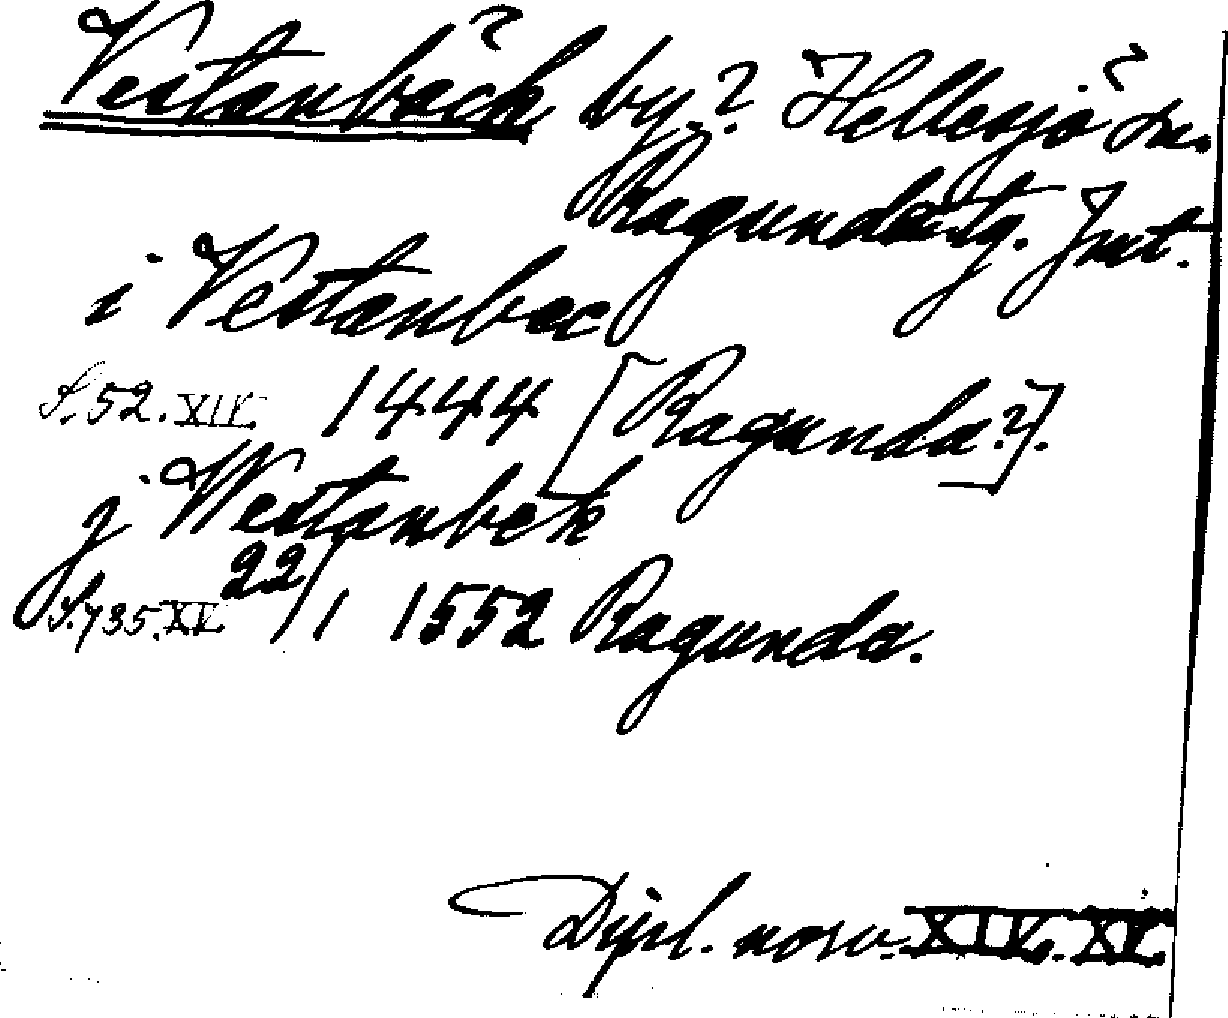 Vestanbäck by.? Hellesjö sn.
Ragunda tg. Jmt.
i Vestanbac
S. 52. XIV. 1444 [Ragunda?].
j Westanbek
S. 735. XV. 22/1 1552 Ragunda.
Dipl. norv. XIV. XV.